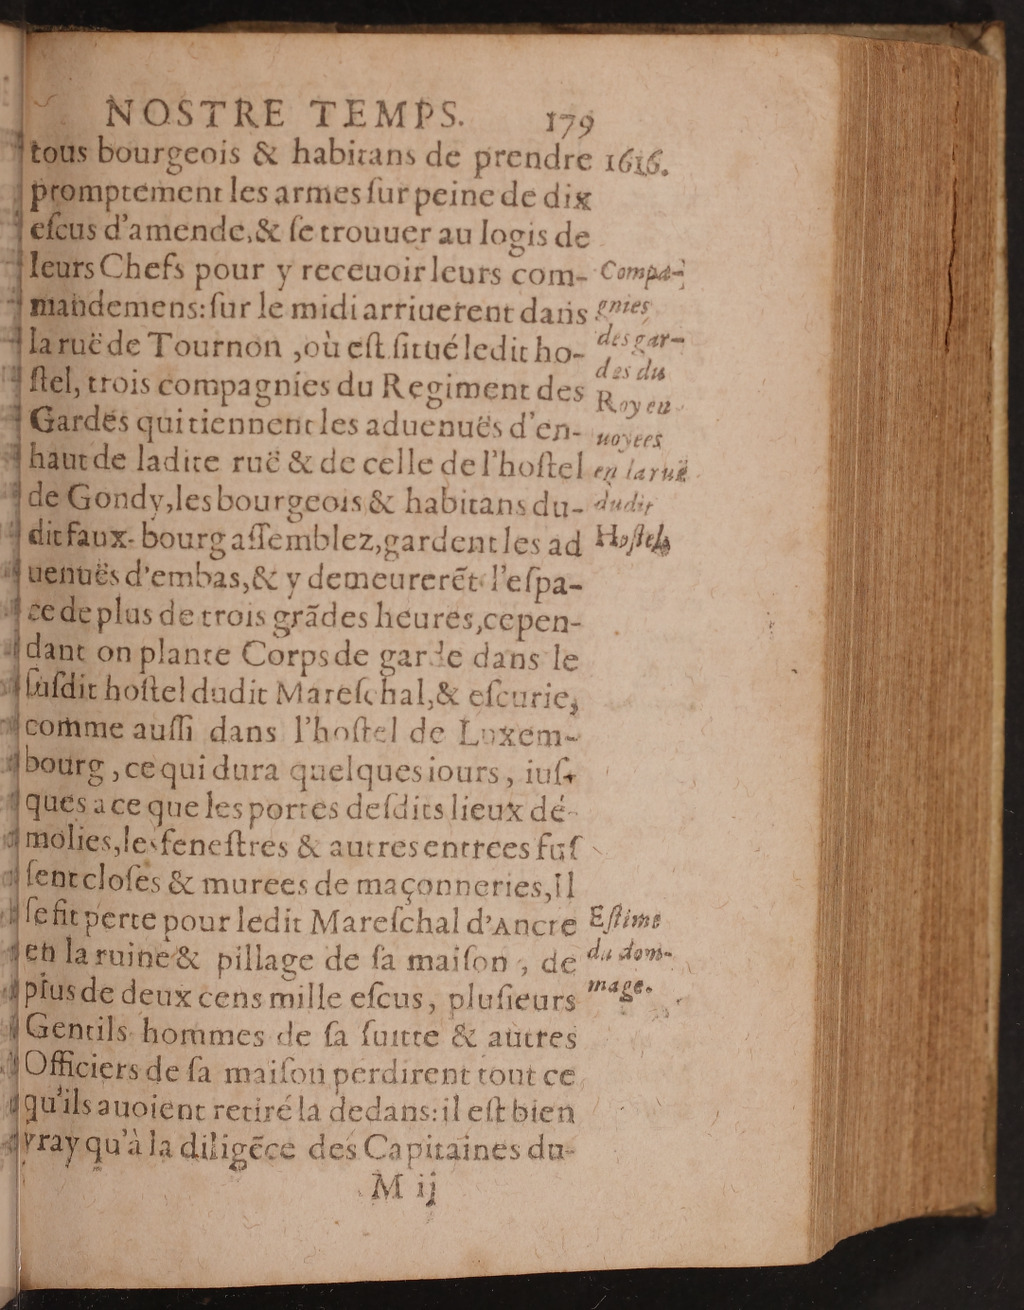 NOSTRE TEMPS. 179
tous bourgeois & habitans de prendre 1616.
promptement les armes ſur peine de dix
eſcus d'amende, & ſe trouuer au logis de
leurs Chefs pour y receuoir leurs com-
mandemens: ſur le midi arriuerent dans
la ruë de Tournon, où eſt ſitué ledit ho-
ſtel, trois compagnies du Regiment des
Gardes qui tiennent les aduenuës d'en-
haut de ladite ruë & de celle de l'hoſtel
de Gondy, les bourgeois & habitans du-
dit faux-bourg aſſemblez, gardent les ad
uenuës d'embas, & y demeurerẽt l'eſpa-
ce de plus de trois grãdes heures, cepen-
dant on plante Corps de garde dans le
ſuſdit hoſtel dudit Mareſchal, & eſcurie,
comme auſſi dans l'hoſtel de Luxem-
bourg, ce qui dura quelques iours, iuſ-
ques a ce que les portes deſdits lieux dé-
molies, les feneſtres & autres entrees fuſ
ſent cloſes & murees de maçonneries, il
ſe fit perte pour ledit Mareſchal d'Ancre
en la ruine & pillage de ſa maiſon, de
plus de deux cens mille eſcus, pluſieurs
Gentils-hommes de ſa ſuitte & autres
Officiers de ſa maiſon perdirent tout ce
qu'ils auoient retiré la dedans: il eſt bien
vray qu'à la diligẽce des Capitaines du-
M ij
Compa-
gnies
des gar-
des du
Roy en
uoyees
en la ruë
dudit
Hoſtel.
Eſtime
du dom-
mage.